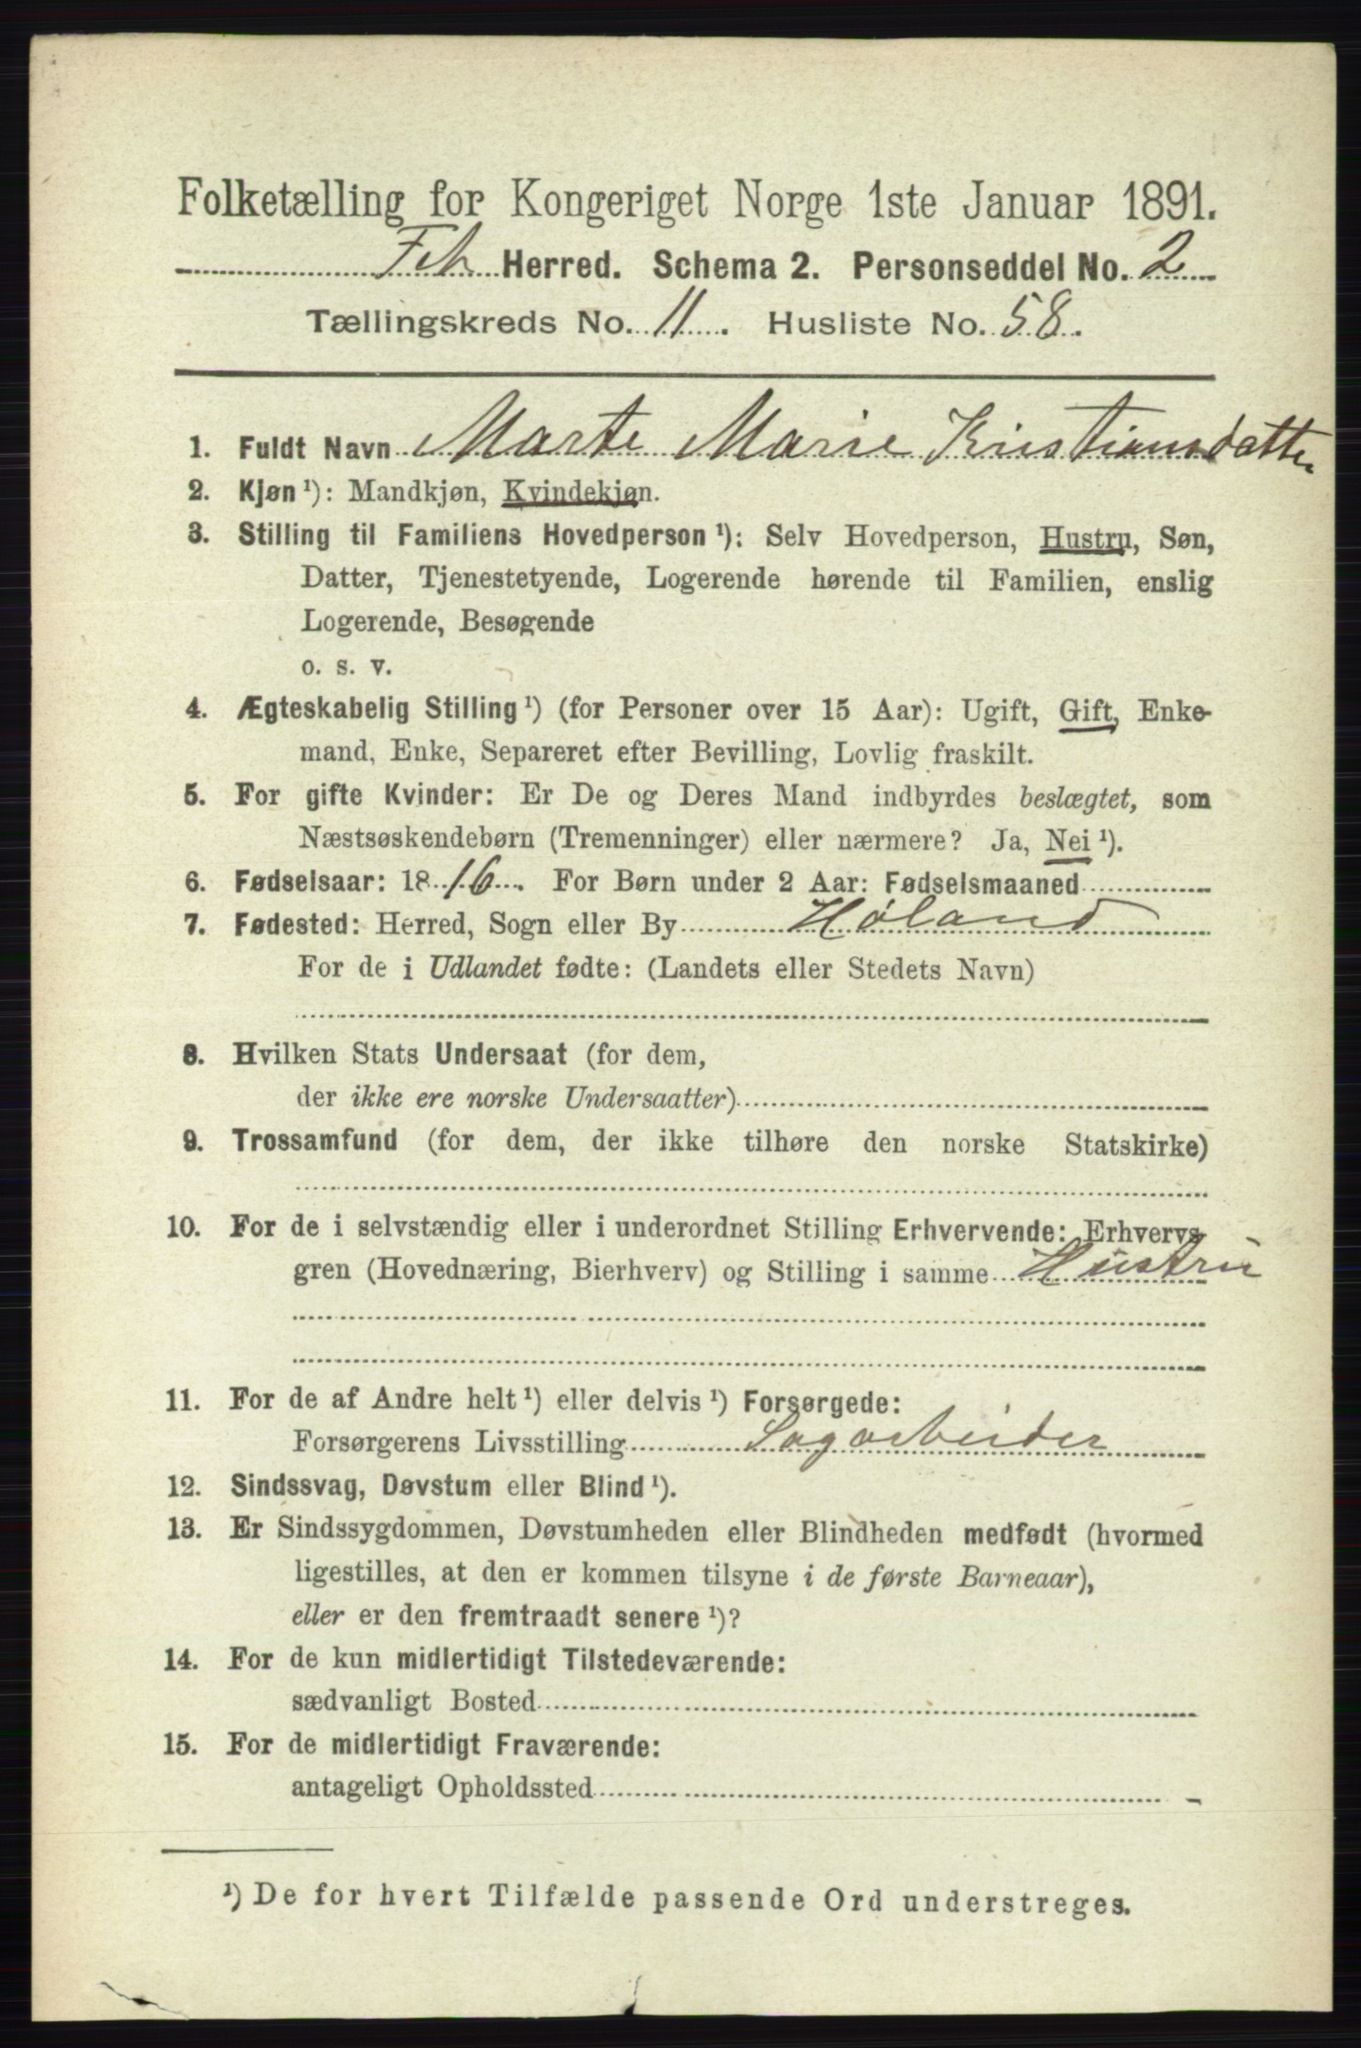 Folketælling for Kongeriget Norge 1ste Januar 1891.
Fet Herred. Schema 2. Personseddel No. 2
Tællingskreds No. 11. Husliste No. 58.
1. Fuldt Navn Marte Marie Kristiansdatter
2. Kjøn ¹): Mandkjøn, Kvindekjøn.
3. Stilling til Familiens Hovedperson ¹): Selv Hovedperson, Hustru, Søn,
Datter, Tjenestetyende, Logerende hørende til Familien, enslig
Logerende, Besøgende
o. s. v.
4. Ægteskabelig Stilling ¹) (for Personer over 15 Aar): Ugift, Gift, Enke-
mand, Enke, Separeret efter Bevilling, Lovlig fraskilt.
5. For gifte Kvinder: Er De og Deres Mand indbyrdes beslægtet, som
Næstsøskendebørn (Tremenninger) eller nærmere? Ja, Nei ¹).
6. Fødselsaar: 1816. For Børn under 2 Aar: Fødselsmaaned
7. Fødested: Herred, Sogn eller By Høland
For de i Udlandet fødte: (Landets eller Stedets Navn)
8. Hvilken Stats Undersaat (for dem,
der ikke ere norske Undersaatter)
9. Trossamfund (for dem, der ikke tilhøre den norske Statskirke)
10. For de i selvstændig eller i underordnet Stilling Erhvervende: Erhvervs
gren (Hovednæring, Bierhverv) og Stilling i samme Hustru
11. For de af Andre helt ¹) eller delvis ¹) Forsørgede:
Forsørgerens Livsstilling Sagarbeider
12. Sindssvag, Døvstum eller Blind ¹).
13. Er Sindssygdommen, Døvstumheden eller Blindheden medfødt (hvormed
ligestilles, at den er kommen tilsyne i de første Barneaar),
eller er den fremtraadt senere ¹)?
14. For de kun midlertidigt Tilstedeværende:
sædvanligt Bosted
15. For de midlertidigt Fraværende:
antageligt Opholdssted
¹) De for hvert Tilfælde passende Ord understreges.